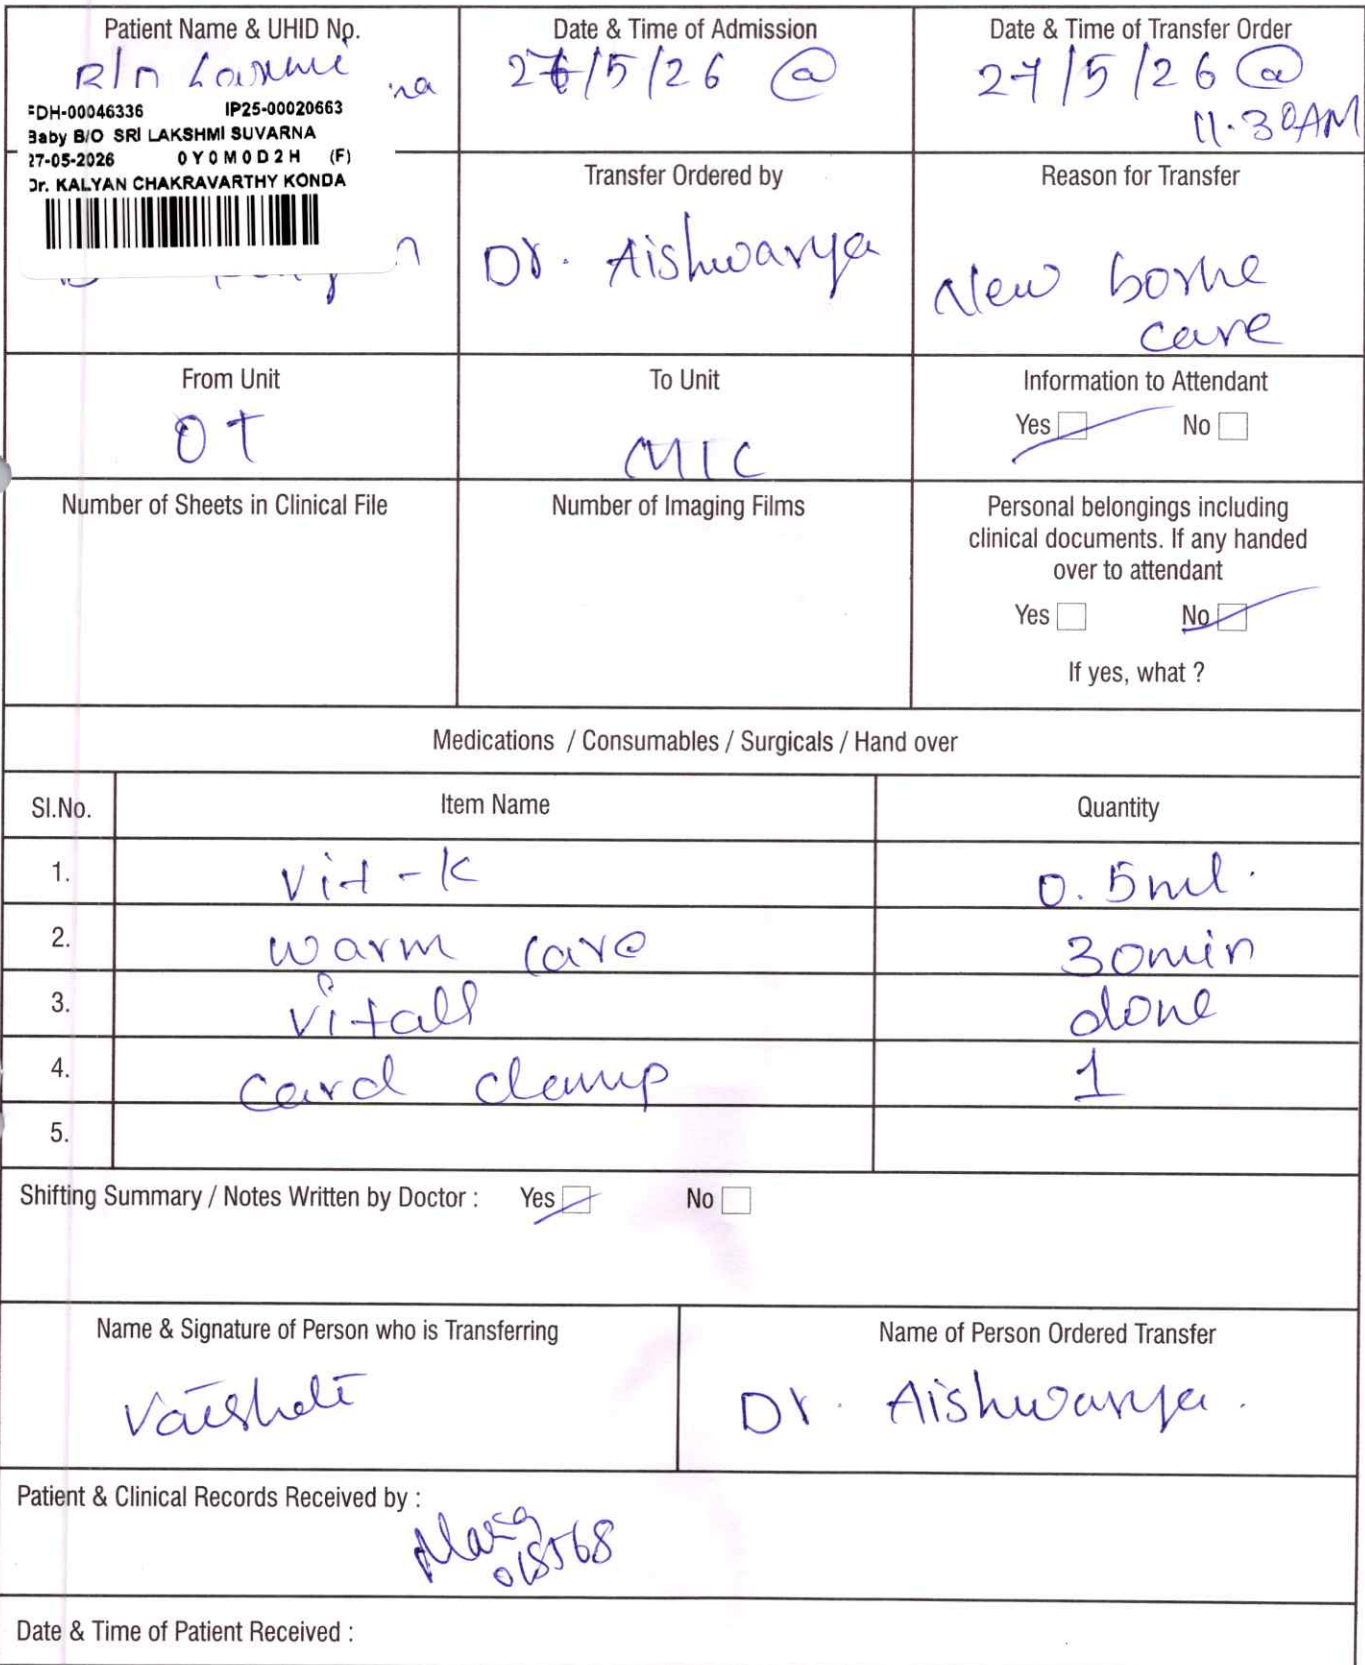 Patient Name & UHID No.
Date & Time of Admission
Date & Time of Transfer Order
27/5/26 @
11.30AM
26/5/26 @
FDH-00046336 IP25-00020663
Baby B/O SRI LAKSHMI SUVARNA
27-05-2026 0 Y 0 M 0 D 2 H (F)
Dr. KALYAN CHAKRAVARTHY KONDA
Transfer Ordered by
Dr. Aishwarya
Reason for Transfer
New borne
care
From Unit
OT
To Unit
MIC
Information to Attendant
Yes No
Number of Sheets in Clinical File
Number of Imaging Films
Personal belongings including
clinical documents. If any handed
over to attendant
Yes No
If yes, what ?
Medications / Consumables / Surgicals / Hand over
Sl.No. Item Name Quantity
1. Vit-K 0.5ml.
2. warm care 30min
3. vitals done
4. Cord clamp 1
5.
Shifting Summary / Notes Written by Doctor : Yes No
Name & Signature of Person who is Transferring
Name of Person Ordered Transfer
Dr. Aishwarya.
Patient & Clinical Records Received by :
018568
Date & Time of Patient Received :